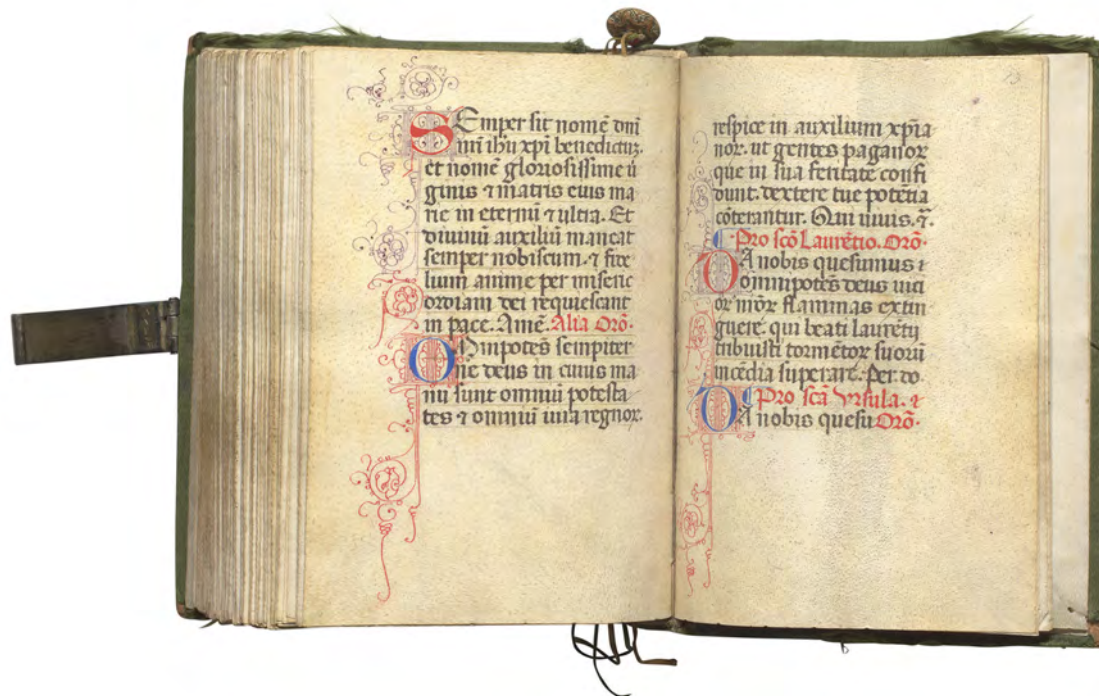 SEmper sit nomē dn̄i
nr̄i ihū xp̄i benedictuꝫ.
et nomē gloriosissime ū
ginis ⁊ matris eius ma
rie in eternū ⁊ ultra. Et
divinū auxiliū maneat
semper nobiscum. ⁊ fide
lium anime per miseric
ordiam dei requiescant
in pace. Amē. Alia Orō.
OMnipotēs sempiter
ne deus in cuius ma
nu sunt omniū potesta
tes ⁊ omniū iura regnoꝝ.
respice in auxilium xp̄ia
noꝝ. ut gentes paganoꝝ
que in sua feritate confi
dunt. dextere tue potētia
cōterantur. Qui vivis. ⁊̄.
Pro scō Laurētio. Orō.
DA nobis quesumus
omnipotēs deus vici
oꝝ nr̄oꝝ flammas extin
guere. qui beati laurētii
tribuisti tormētoꝝ suorū
incēdia superare. Per do
Pro scā Vrsula.
DA nobis quesu Orō.